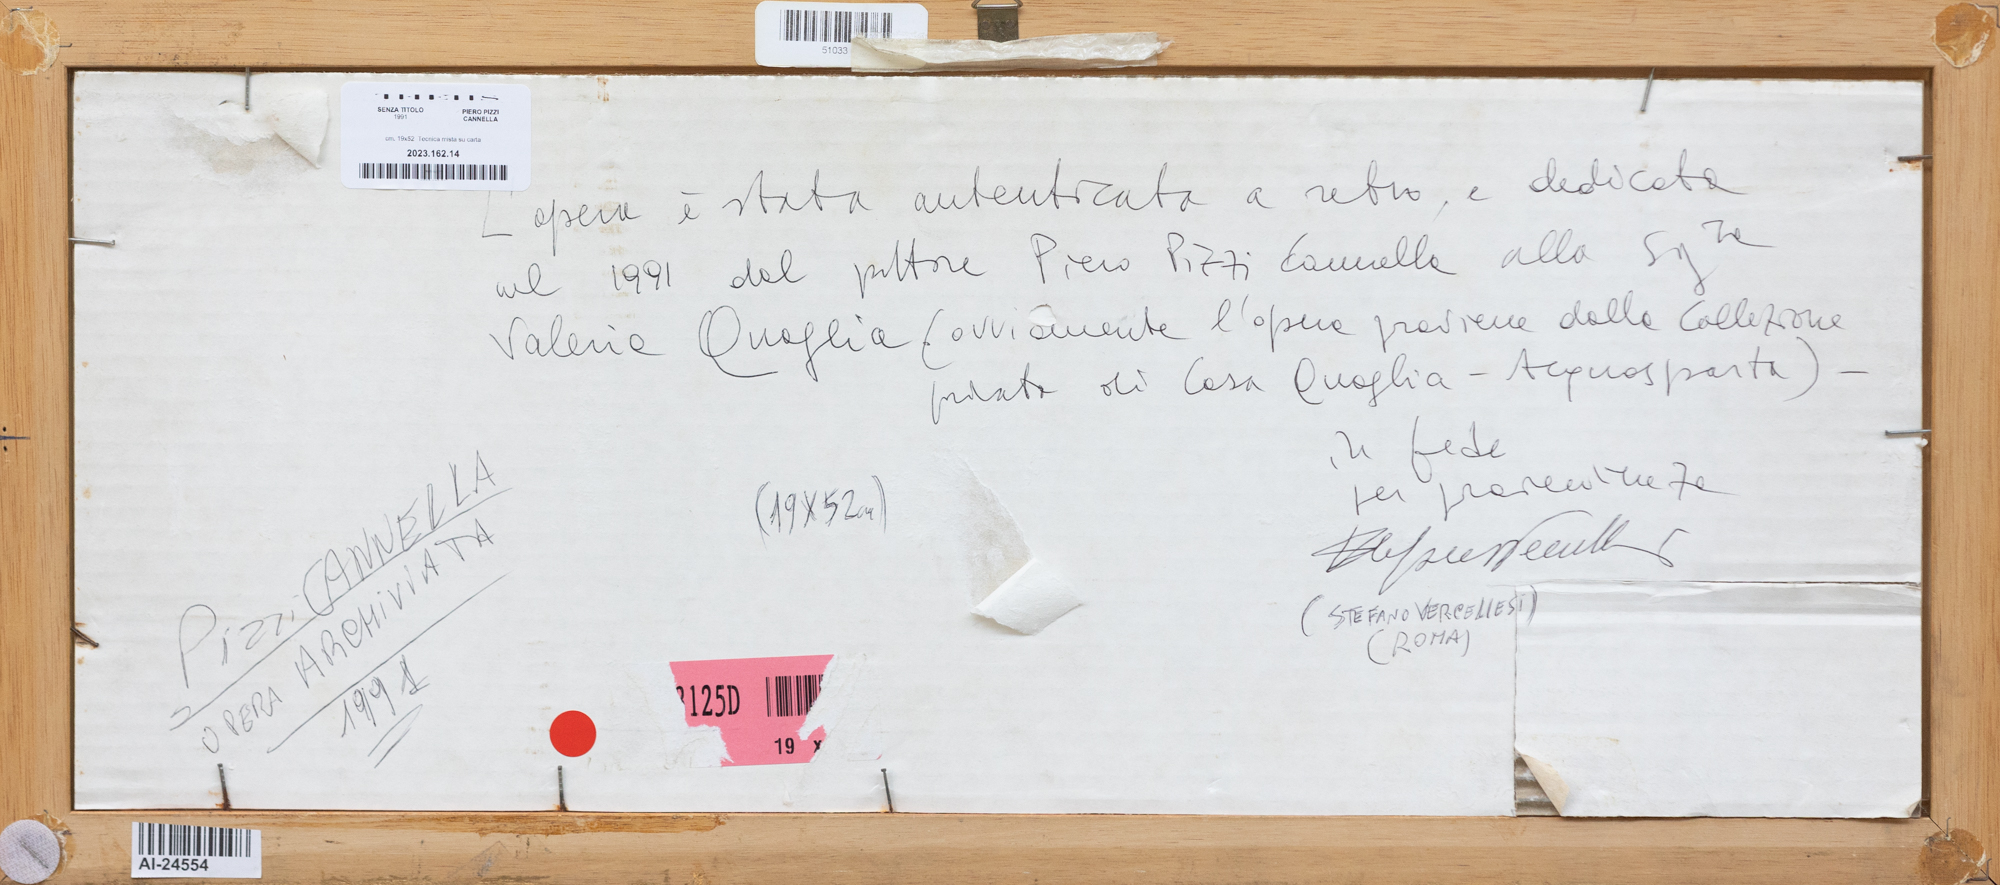 51033
SENZA TITOLO
1991
PIERO PIZZI
CANNELLA
cm. 19x52 Tecnica mista su carta
2023.162.14
L'opera è stata autenticata a retro, e dedicata
nel 1991 dal pittore Piero Pizzi Cannella alla Sig.ra
Valeria Quaglia (ovviamente l'opera proviene dalla Collezione
privata di Casa Quaglia - Acquasparta) -
in fede
per provenienza
(STEFANO VERCELLESI)
(ROMA)
(19X52cm)
Pizzi CANNELLA
OPERA ARCHIVIATA
1991
125D
19 x
AI-24554